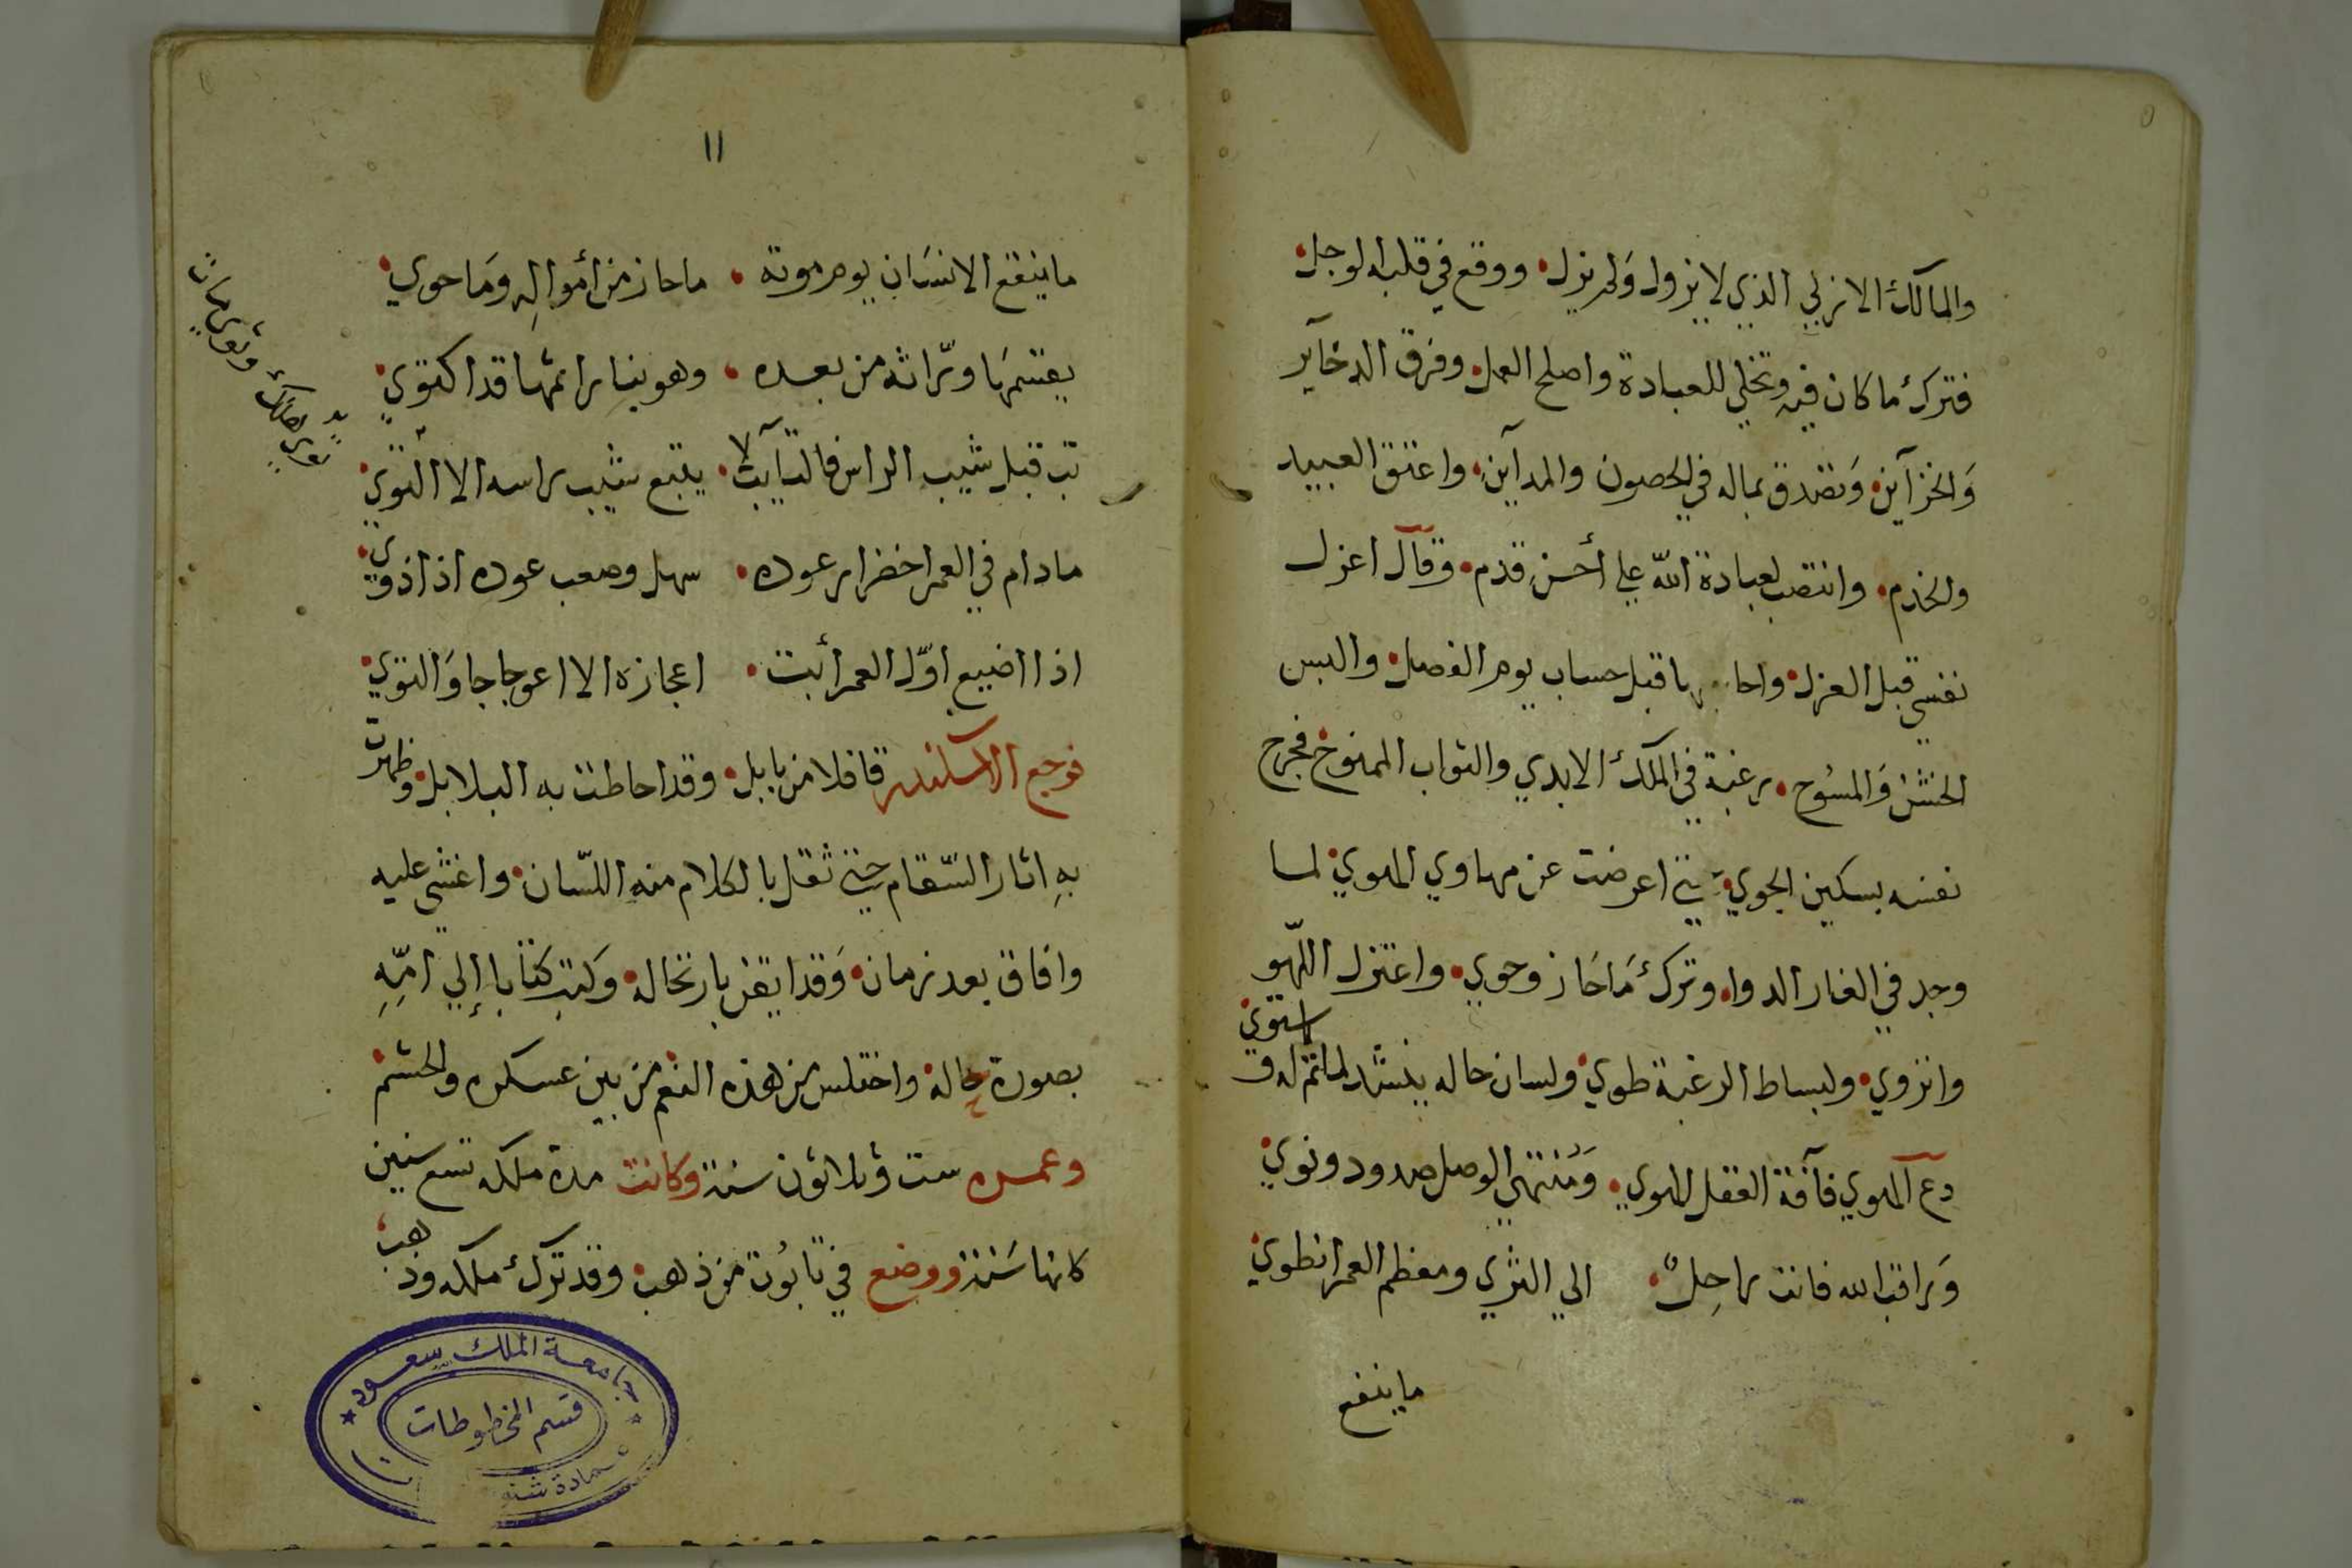 والمالك الازلي الذي لا يزول ولم يزل ووقع في قلبه الوجل
فترك ما كان فيه وتخلي للعبادة واصلح العمل وفرق الدخآير
وَالخزآين وَتصدق بماله في الحصون والمدآين واعتق العبيد
والخدم وانتصب لعبادة الله علي أحسن قدم وقآل اعزل
نفسي قبل العزل قبل حساب يوم الفصل والبس
الخشن وَالمسُوح رغبة في الملك الابدي والثواب الممنوح فجرح
نفسه بسكين الجوي اعرضت عن مهاوي الهوي لما
وجد في الغار الدوا وترك مَا حَاز وحوي واعتزل اللّهو
وانزوي ولبساط الرغبة طوي ولسان حاله ينشد لما تم له و استوي
دع آلهوي فآفة العقل الهوي وَمُنتهي الوصل صدود ونوي
وَراقب الله فانت راحِلٌ الي الثري ومعظم العمر انطوي
ما ينفع
١١
ما ينفع الانسَان يوم موته ما حاز من أموالِه وَما حوي
يقتسمَها ورّاثه من بعده وهو بنار اثمها قد اكتوي
تب قبل شيب الراس فالتآيب لا يتبع شيب راسه الا التوي
ما دام في العمر اخضرار عوده سهل وصعب عوده اذا ذوي
اذا اضيع اوّل العمر أبت اعجازه الا اعوجاجا وَالتوي
فرجع الاسكندر قافلا من بابل وقد احاطت به البلابل وظهرت
بهِ اثار السّقام حتي ثقل بالكلام منه اللسّان واغشي عليه
وافاق بعد زمان وَقد ايقن بارتحاله وَكتب كتابا إلي امِّهِ
بصورة حاله واختلس من هذه النعم من بين عسكره والحشم
وعمره ست وثلاثون سنة وكانت مدة ملكه تسع سنين
كانها سَنة ووضع في تابُوت من ذهب وقد ترك ملكه وذهب
جامعة الملك سعود
قسم المخطوطات
عمادة